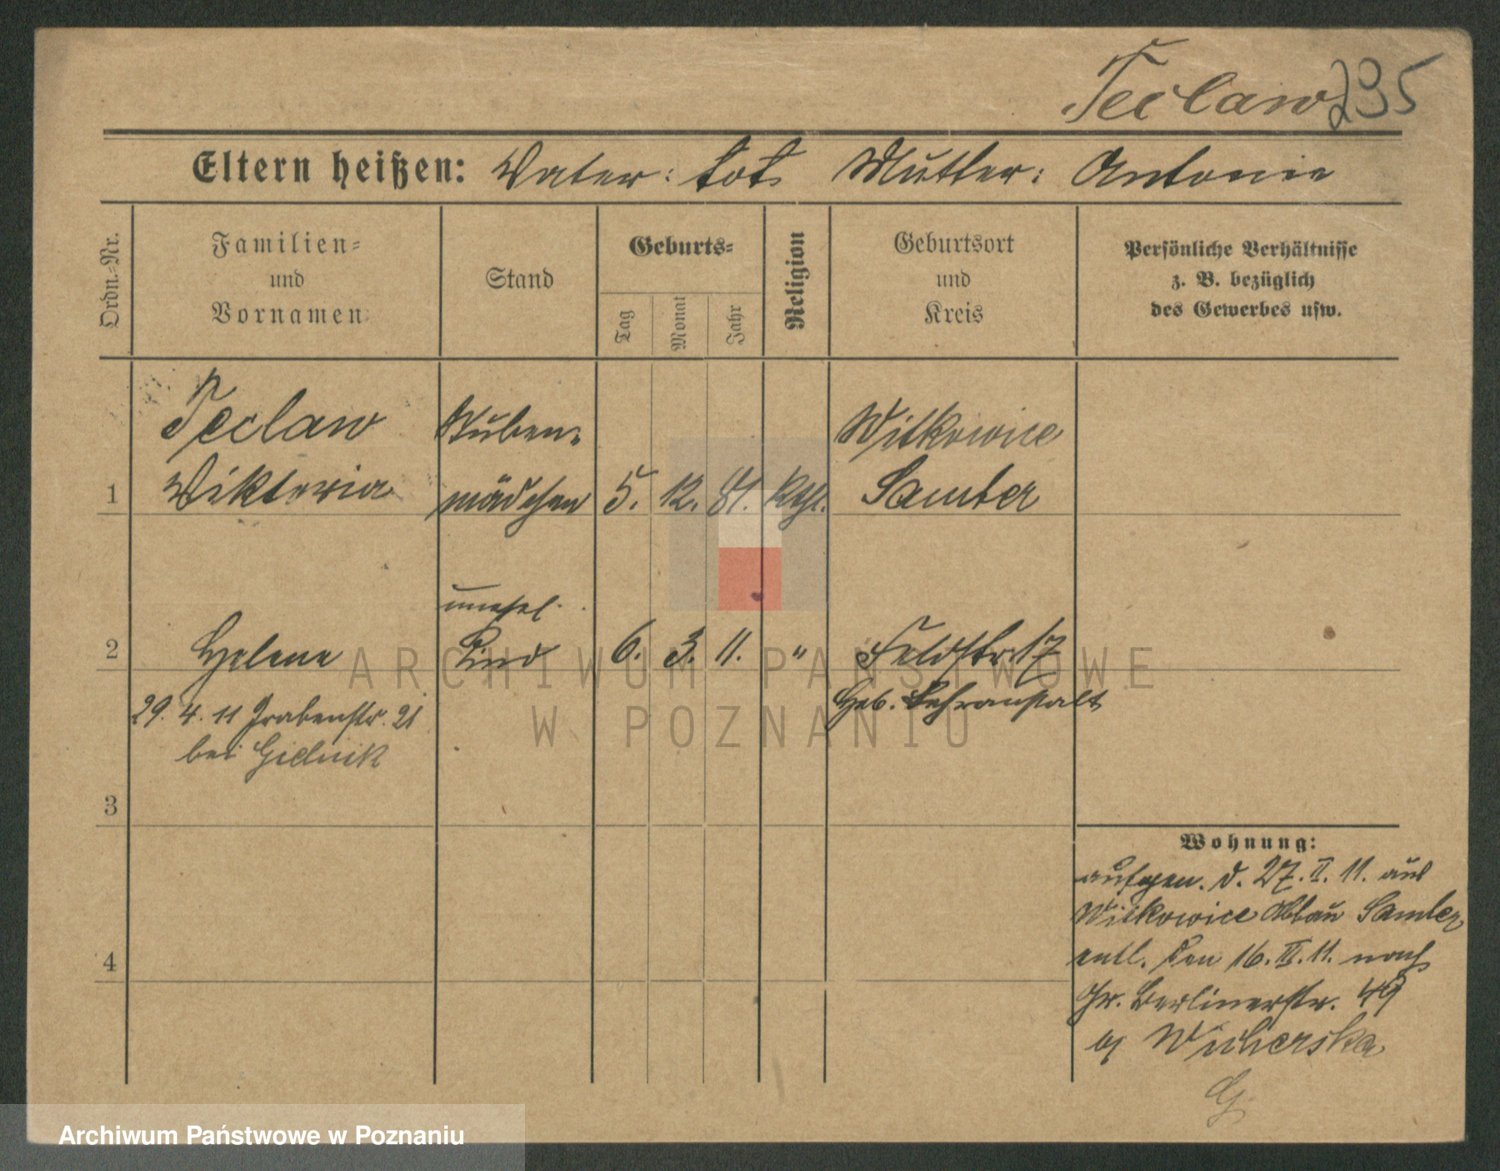 Teclaw 235
Eltern heißen: Vater: tot Mutter: Antonie
Ordn.-Nr.
Familien-
und
Vornamen
Stand
Geburts-
Tag
Monat
Jahr
Religion
Geburtsort
und
Kreis
Persönliche Verhältnisse
z. B. bezüglich
des Gewerbes usw.
Teclaw Stuben- Witkowice
1 Wiktoria mädchen 5. 12. 81. Kth. Samter
unehel.
2 Helene Kind 6. 3. 11. " Feldstr 17
29. 4. 11 Grabenstr. 21 Heb. Lehranstalt
bei Gielnik
3
Wohnung:
aufgen. d. 27. I. 11. aus
Witkowice Samter
4
entl. den 16. III. 11. nach
Gr. Berlinerstr. 49
Wicherska
G
ARCHIWUM PAŃSTWOWE
W POZNANIU
Archiwum Państwowe w Poznaniu